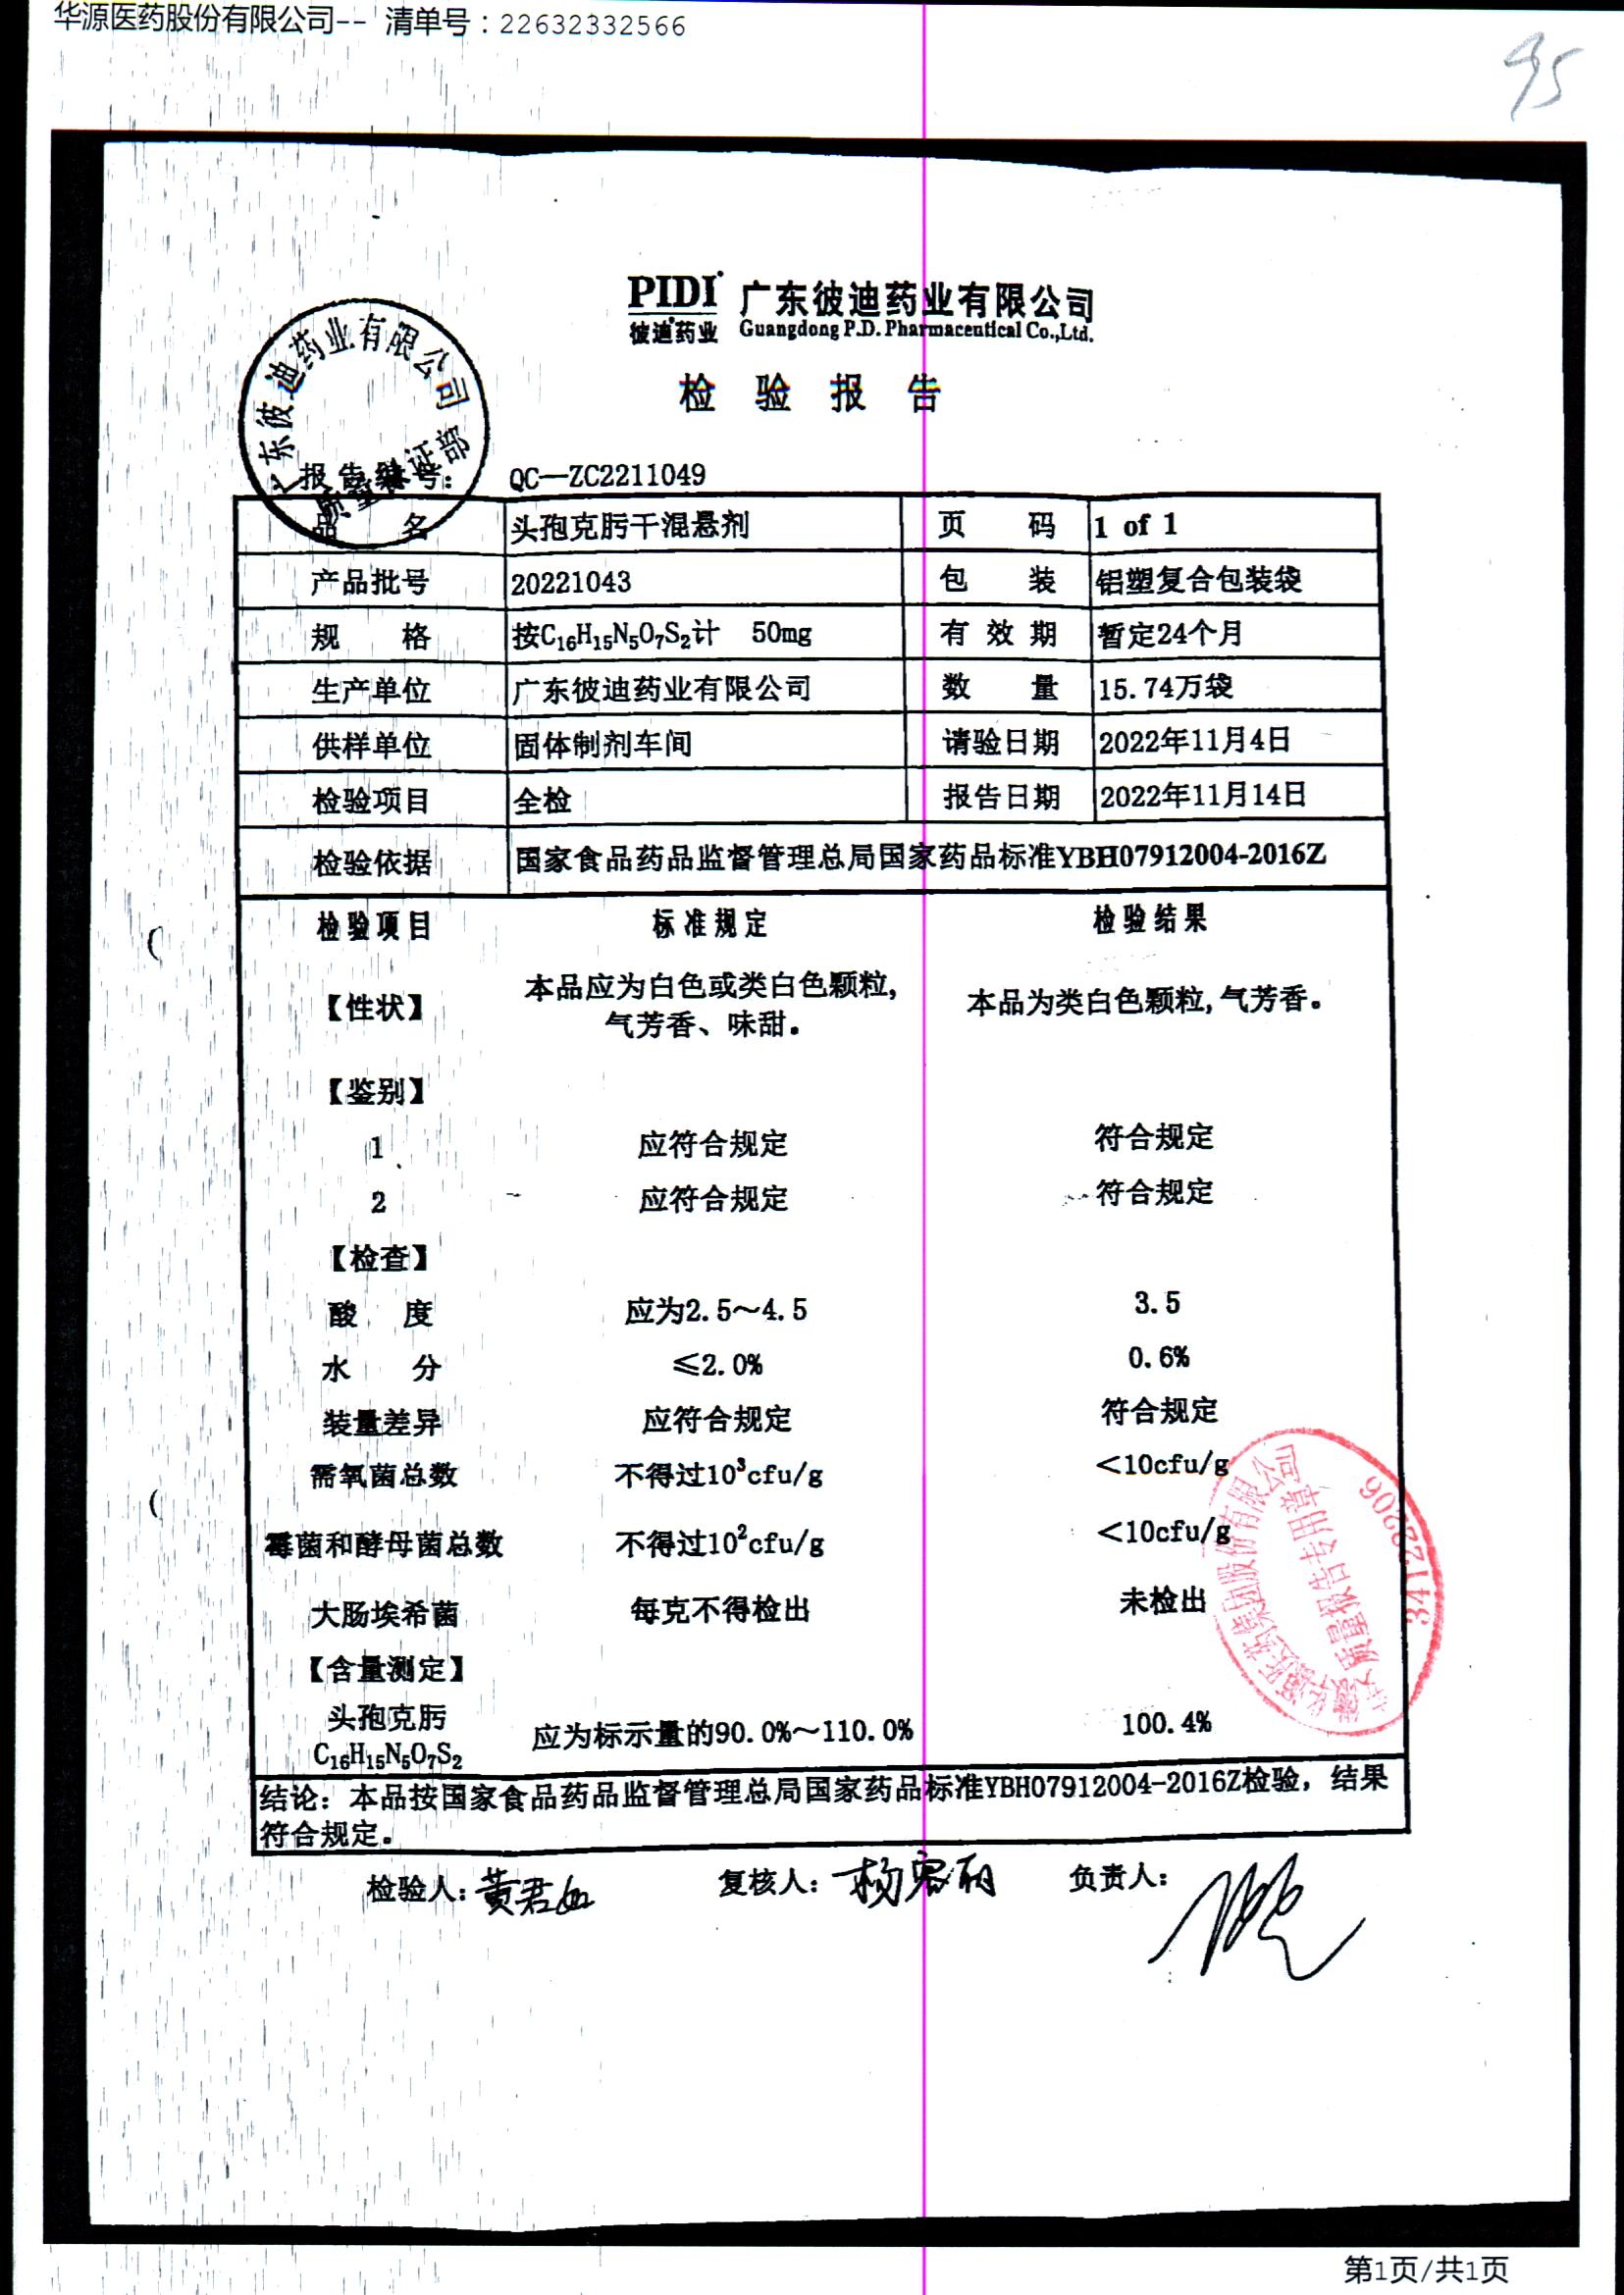 华源医药股份有限公司-- 清单号：22632332566
95
PIDI 广东彼迪药业有限公司
彼迪药业 Guangdong P.D. Pharmaceutical Co.,Ltd.
检 验 报 告
广东彼迪药业有限公司
质量保证部
报告编号： QC—ZC2211049
品 名 头孢克肟干混悬剂 页 码 1 of 1
产品批号 20221043 包 装 铝塑复合包装袋
规 格 按C₁₆H₁₅N₅O₇S₂计 50mg 有 效 期 暂定24个月
生产单位 广东彼迪药业有限公司 数 量 15.74万袋
供样单位 固体制剂车间 请验日期 2022年11月4日
检验项目 全检 报告日期 2022年11月14日
检验依据 国家食品药品监督管理总局国家药品标准YBH07912004-2016Z
检验项目 标准规定 检验结果
【性状】 本品应为白色或类白色颗粒, 本品为类白色颗粒,气芳香。
气芳香、味甜。
【鉴别】
1 应符合规定 符合规定
2 应符合规定 符合规定
【检查】
酸 度 应为2.5～4.5 3.5
水 分 ≤2.0% 0.6%
装量差异 应符合规定 符合规定
需氧菌总数 不得过10³cfu/g ＜10cfu/g
霉菌和酵母菌总数 不得过10²cfu/g ＜10cfu/g
大肠埃希菌 每克不得检出 未检出
【含量测定】
头孢克肟 应为标示量的90.0%～110.0% 100.4%
C₁₆H₁₅N₅O₇S₂
质量报告专用章
结论：本品按国家食品药品监督管理总局国家药品标准YBH07912004-2016Z检验，结果
符合规定。
检验人：黄君如 复核人： 负责人：
第1页/共1页